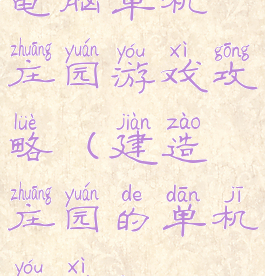 電脑单机
zhuāng yuán yóu xì gōng
庄园游戏攻
lüè jiàn zào
略（建造
zhuāng yuán de dān jī
庄园的单机
yóu xì